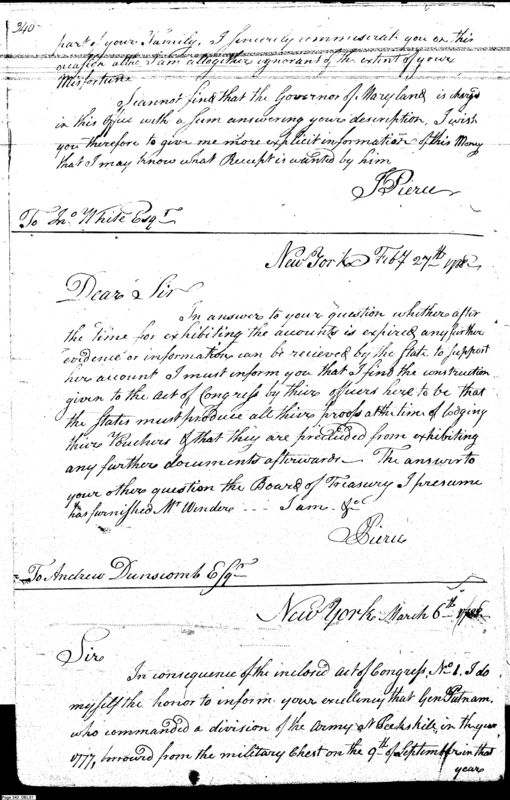 340
part of your Family. I sincerely commiserate you on this
occasion altho I am altogether ignorant of the extent of your
Misfortune
I cannot find that the Governor of Maryland is charged
in this Office with a sum answering your description. I wish
you therefore to give me more explicit information of this Money
that I may know what Receipt is wanted by him
J Pierce
To Jno White Esqr
New York Feby 27th 1788
Dear Sir
In answer to your question whether after
the time for exhibiting the accounts is expired any further
evidence or information can be recieved by the State to support
her account I must inform you that I find the construction
given to the Act of Congress by thier officers here to be that
the States must produce all thier proofs at the time of lodging
thier Vouchers & that they are precluded from exhibiting
any further documents afterwards — The answer to
your other question the Board of Treasury I presume
has furnished Mr Winder --- I am &c
J Pierce
To Andrew Dunscomb Esqr
New York March 6th 1788
Sir
In consequence of the inclosed Act of Congress, No 1. I do
myself the honor to inform your excellency that Genl Putnam,
who commanded a division of the Army at Peekskill, in the year
1777, borrowed from the military Chest on the 9th of September in that
year